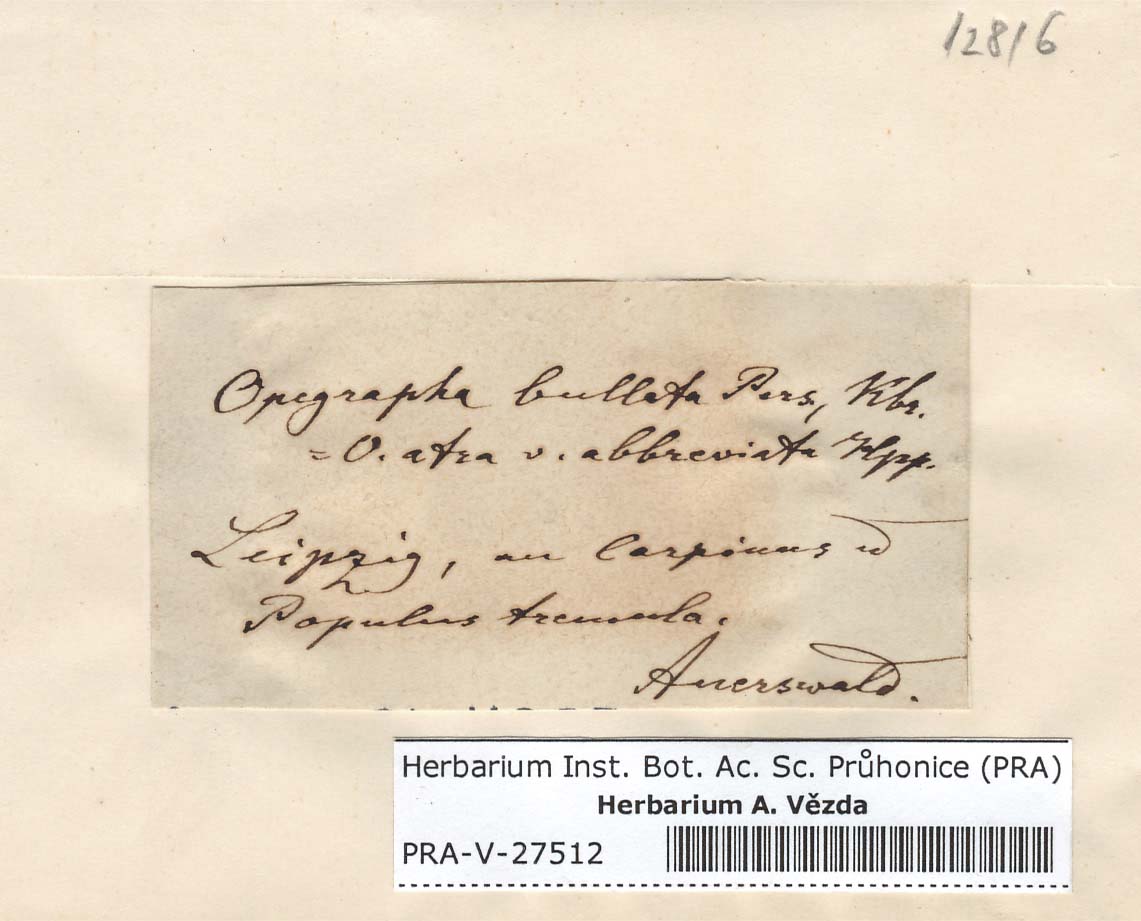 12816
Opegrapha bullata Pers, Kbr.
= O. atra v. abbreviata Hpp.
Leipzig, an Carpinus u
Populus tremula.
Auerswald.
Herbarium Inst. Bot. Ac. Sc. Průhonice (PRA)
Herbarium A. Vězda
PRA-V-27512